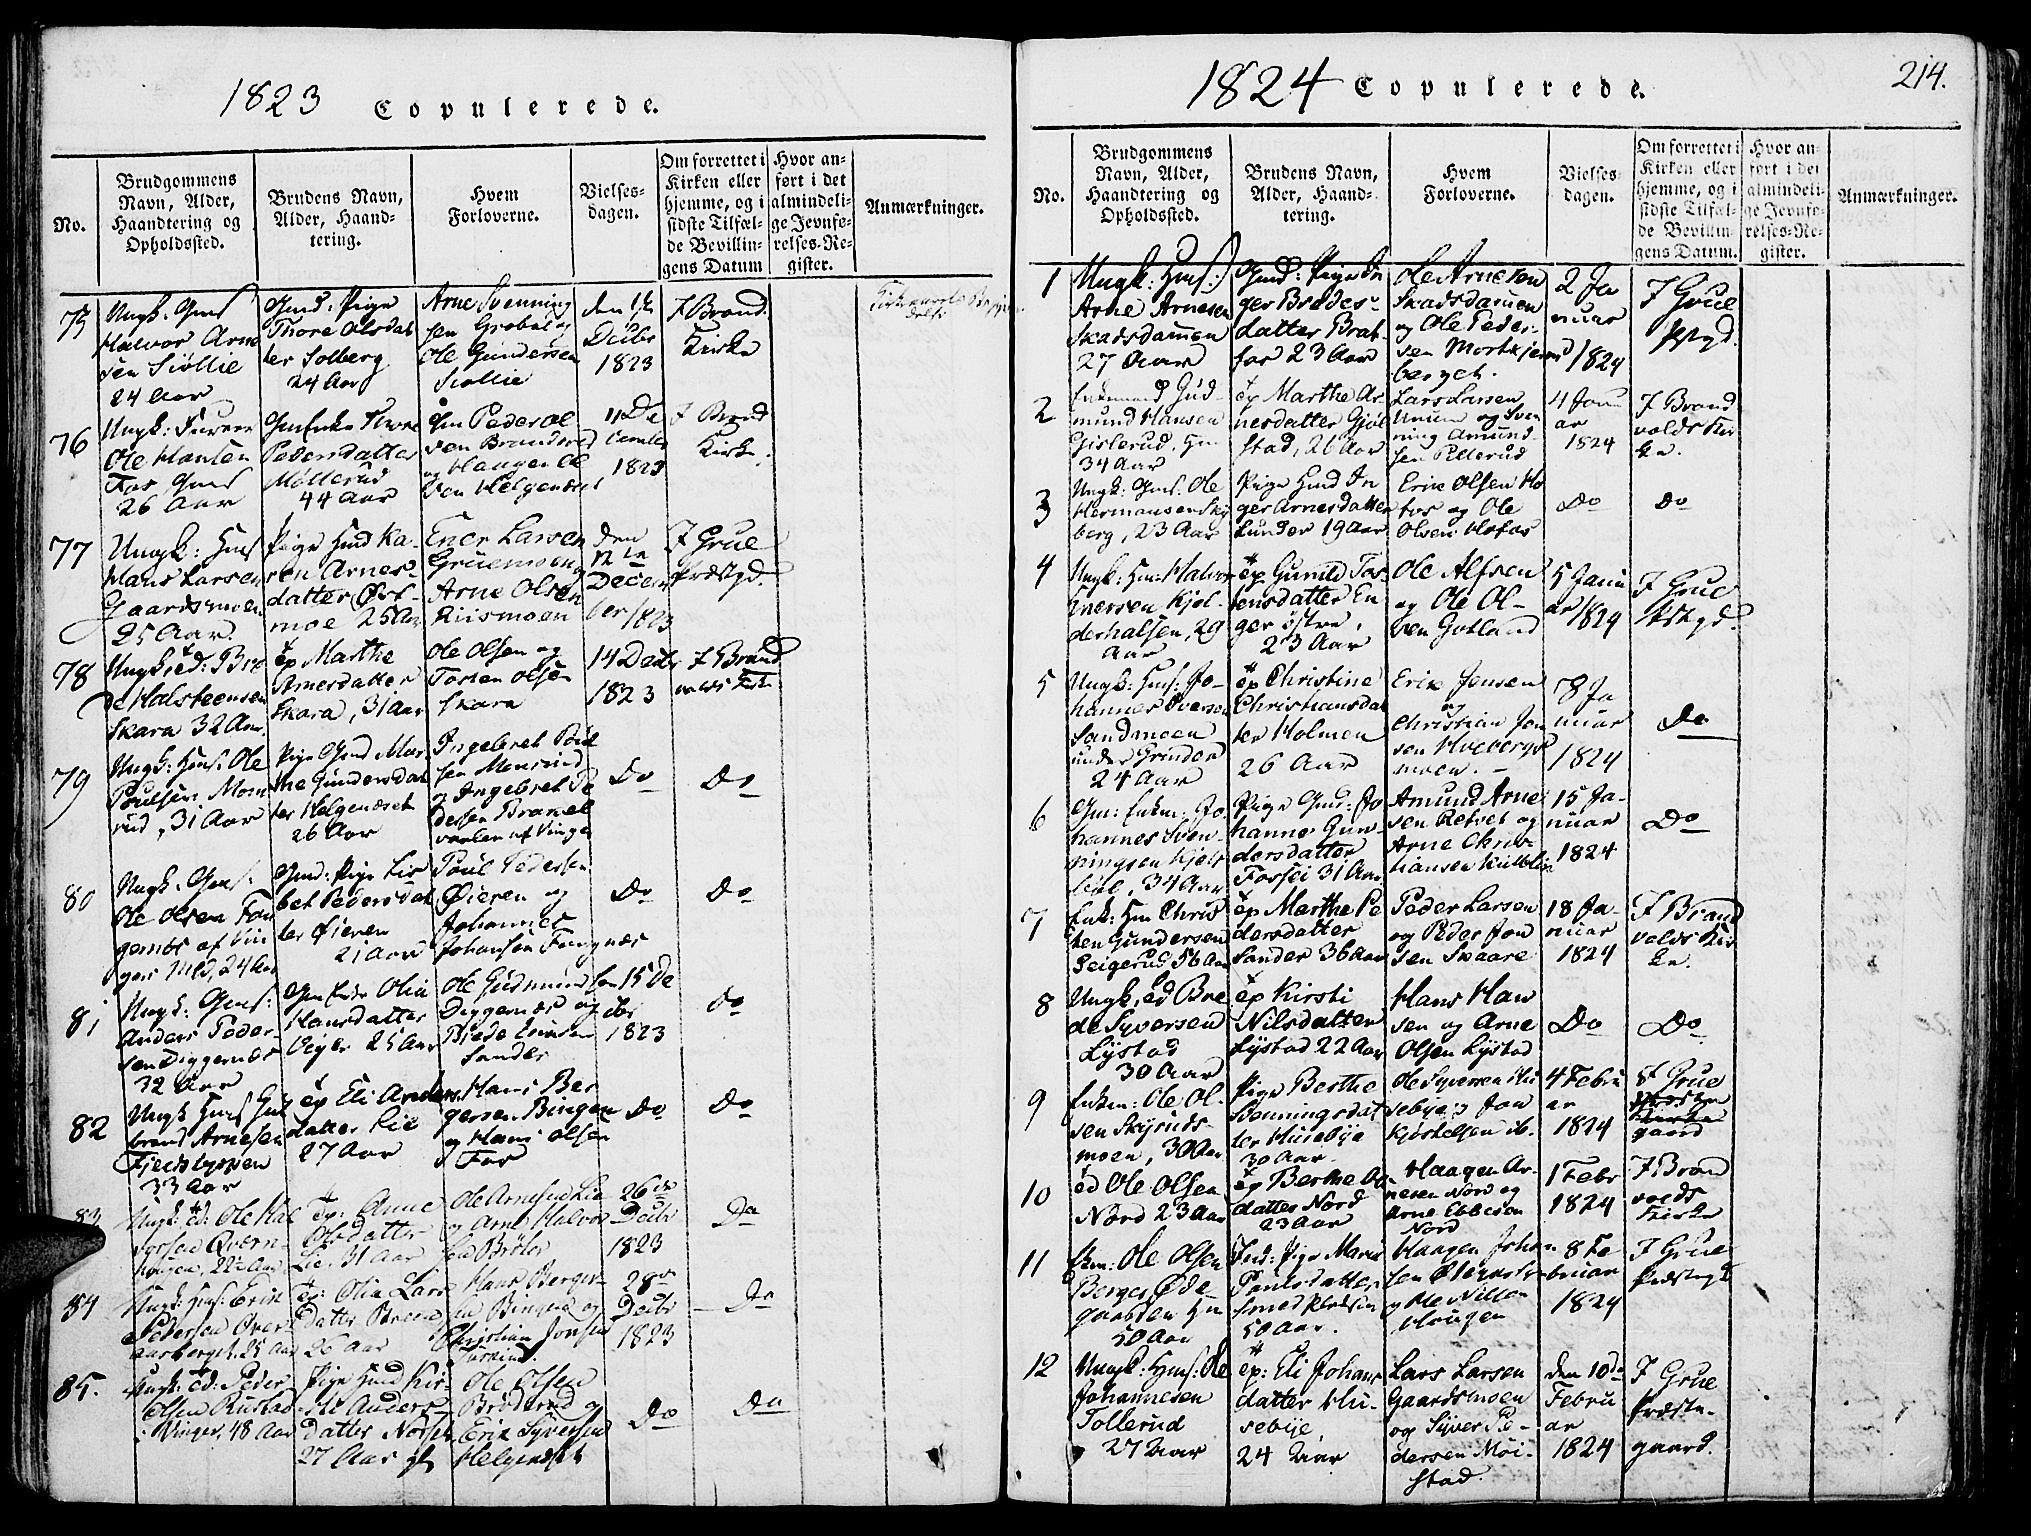 1823 Copulerede.
No.
Brudgommens
Navn, Alder,
Haandtering og
Opholdssted.
Brudens Navn,
Alder, Haand-
tering.
Hvem
Forloverne.
Vielses-
dagen.
Om forrettet i
Kirken eller
hjemme, og i
sidste Tilfæl-
de Bevillin-
gens Datum
Hvor an-
ført i det
almindeli-
ge Jevnfø-
relses-Re-
gister.
Anmærkninger.
75
Ungk. Gms
Halvor Arne
sen Siøllie
24 Aar
Gmd: Pige
Thore Olsdat
ter Solberg
24 Aar
Arne Svenning
sen Grobøl og
Ole Gundersen
Siøllie
Decbr
1823
I Brand.
Kirke
76
Ungk:
Ole Hansen
Fos, Gms
26 Aar
Pedersdatter
Møllerud
44 Aar
Gm Peder Ol
sen Branderud
og Haagen Ol
sen Helgenæset
11 De
cember
1823
I Brand
Kirke.
77
Ungk: Hms
Hans Larsen
Gaardsmoen
25 Aar.
Pige Hmd Ka-
ren Arnes-
datter
moe 25 Aar
Ener Larsen
Gruemoen og
Arne Olsen
Riismoen
den
12te
Decem
ber 1823
I Grue
Præstgd.
78
Ungk: ed: Bre
de Halsteensen
Skara 32 Aar
ep Marthe
Arnesdatter
Skara, 31 Aar
Ole Olsen og
Torsten Olsen
Skara
14 Decbr
1823
I Brand
volds Kirke
79
Ungk: Hms: Ole
Poulsen Mom
rud, 31 Aar
Pige Gmd Mar-
the Gundersdat
ter Helgenæset
26 Aar
Ingebret Poul
sen Momrud
og Ingebret Pe
dersen Branel
vaalen af Vinger
Do
Do
80
Ungk. Gms:
Ole Olsen Fon
gernes af Vin
ger Præstgd, 24 Aar
Gmd: Pige Lis
bet Pedersdat
ter Øieren
21 Aar
Poul Pedersen
Øieren og
Johannes
Johansen Fongnæs
Do
Do
81
Ungk: Gms:
Anders Peder
sen Diggernæs
32 Aar
Gm Enke Olia
Hansdatter
Vejer 25 Aar
Ole Gudmundsen
Diggernæs og
Brede Ericsen
Sander
15 De
cbr
1823
Do
82
Ungk Hms Gul
brand Arnesen
Fjeldsbyssen
33 Aar
ep Eli Anders
datter Lie
27 Aar
Hans Ber
gersen Bingen
og Hans Olsen
Fos
Do
Do
83
Ungk: ed: Ole Hal
vorsen Qvern-
hougen, 22 Aar
Ep: Anne
Olsdatter
Lie, 31 Aar
Ole Arnesen Lie
og Arne Halvor
sen Brøler
26de
Decbr
1823
Do
84
Ungk: Hms: Erik
Pedersen Over
aasberget, 25 Aar
Ep: Olia Lars
datter
26 Aar
Hans Berger-
sen Bingen og
Christian Jonsen
28de
Decbr
1823
Do
85.
Ungk: ed: Peder
Olsen Rustad
Vinger, 48 Aar
Pige Hmd Kir-
sti Anders-
datter Norsen
27 Aar gl
Ole Olsen
Brøderud og
Erik Syversen
Helgenæset
Do
Do
1824 Copulerede.
214.
No.
Brudgommens
Navn, Alder,
Haandtering og
Opholdssted.
Brudens Navn,
Alder, Haand-
tering.
Hvem
Forloverne.
Vielses-
dagen.
Om forrettet i
Kirken eller
hjemme, og i
sidste Tilfæl-
de Bevillin-
gens Datum.
Hvor an-
ført i det
almindeli-
ge Jevnfø-
relses-Re-
gister.
Anmærkninger.
1
Ungk: Hms:
Arne Arnesen
Skadsdamen
27 Aar
Gmd: Pige In
ger Bredes-
datter Brat-
fos 23 Aar
Ole Arnesen
Skadsdamen
og Ole Peder-
sen Mortkjern
berget.
2 Ja
nuar
1824
I Grue
Pstgd.
2
Enkemand Gud-
mund Hansen
Gislerud, Hm
34 Aar
ep Marthe Ar-
nesdatter Gjøl
stad, 26 Aar
Lars Larsen
Unum og Sven
ning Amund-
sen Pellerud
4 Janu
ar
1824
I Brand
volds Kir
ke.
3
Ungk: Gms: Ole
Hermansen Sky
berg, 23 Aar
Pige Hmd In
ger Arnesdatter
Lunder 19 Aar
Erik Olsen Ho
fos og Ole
Olsen Hofos
Do
Do
4
Ungk: Hm: Halvor
Enersen Kjøl-
derhalsen, 29
Aar
ep Gunild Tos-
tensdatter En
ger østre,
23 Aar
Ole Alfsen
og Ole Ol-
sen Gotland
5 Janu
ar 1824
I Grue
Pstgd.
5
Ungk: Hms: Jo-
hannes Iversen
Sandmoen
under Grinder
24 Aar
ep Christine
Christiansdat
ter Holmen
26 Aar
Erik Jensen
og
Christian Jon
sen Hvebergs
moen.
8 Ja
nuar
1824
Do
6
Gm: Enkm: Jo
hannes Sven-
ningsen Kjels
34 Aar
Pige Gmd: Jo
hanne Gun-
dersdatter
Fossei 31 Aar
Amund Arne
sen Retvet og
Arne Chris-
tiansen Kulblien
15 Ja-
nuar
1824
Do
7
Enk: Hm Chris
ten Gundersen
Seigerud 56 Aar
ep Marthe Pe
dersdatter
Sander 36 Aar
Peder Larsen
og Peder Jon
sen Skaare
18 Ja-
nuar
1824
I Brand
volds Kir
ke.
8
Ungk: ed Bre
de Syversen
Lystad
30 Aar
ep Kirsti
Nilsdatter
Lystad 22 Aar
Hans Han
sen og Arne
Olsen Lystad
Do
Do
9
Enkm: Ole Ol-
sen Skyruds-
moen, 30 Aar
Pige Berthe
Svenningsdat
ter Husebye
30 Aar
Ole Syversen Hu
sebye og Jon
Kjøstelsen ib.
4 Febru
ar
1824
I Grue
gaard
10
ed Ole Olsen
Nord 23 Aar
ep Berthe Ols
datter Nord
23 Aar
Haagen Ar-
nesen Nord og
Arne Ebbesen
Nord
1 Febr
1824
I Brand
volds
Kirke
11
Ekm: Ole Olsen
Berger Øde-
gaarden Hm
50 Aar
Ind: Pige Marie
Poulsdatter
50 Aar.
Haagen Johan
sen
og Ole Nilsen
Hougen
8 Fe
bruar
1824
I Grue
Præstegd
12
Ungk: Hms: Ole
Johannesen
Tollerud
27 Aar
ep: Eli Johans
datter Hu-
sebye,
24 Aar
Lars Larsen
Gaardsmoen
og Syver Pe-
dersen Moi-
stad.
den 10de
Febru
ar
1824
I Grue
Præste-
gaard.